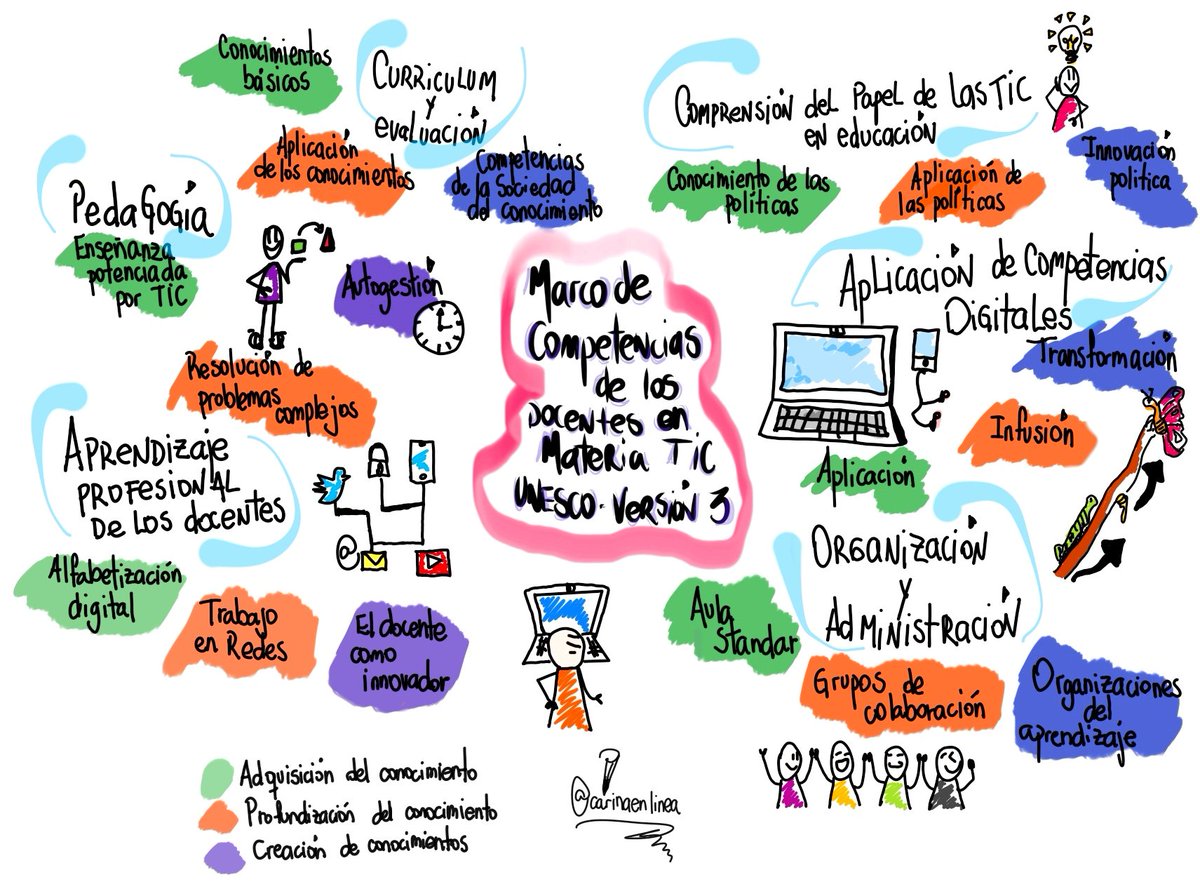 Conocimientos
básicos
CURRICULUM
y
evaluación
Aplicación
de los conocimientos
Competencias
de la Sociedad
del conocimiento
COMPRENSIÓN del Papel de las TIC
en educación
Conocimiento de las
políticas
Aplicación de
las políticas
Innovación
política
PedaGogía
Enseñanza
potenciada
por TIC
Autogestión
Resolución de
problemas
complejos
Marco de
Competencias
de los
Docentes en
Materia TIC
UNESCO. Versión 3
Aplicación de Competencias
Digitales
Transformación
Infusión
Aplicación
APRENDIZAJE
PROFESIONAL
DE LOS docentes
Alfabetización
digital
Trabajo
en Redes
El docente
como
innovador
@
ORGANIZACIÓN
y
AdMINISTRACIÓN
Aula
Standar
Grupos de
colaboración
Organizaciones
del
aprendizaje
Adquisición del conocimiento
Profundización del conocimiento
Creación de conocimientos
@carinaenlinea